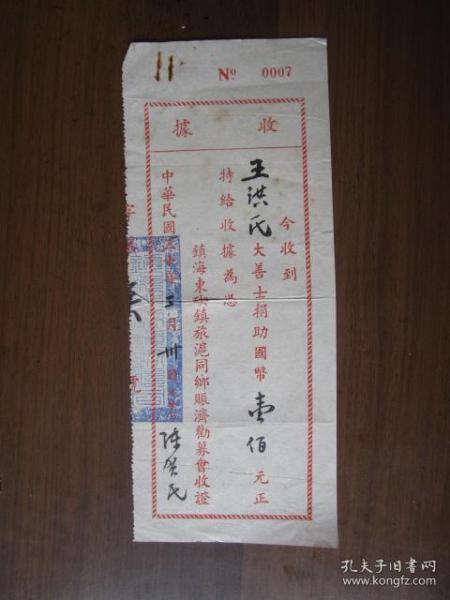 Nº 0007
收據
今收到
王洪氏大善士捐助國幣壹佰元正
特給收據為憑
鎮海東碶鎮旅滬同鄉賑濟勸募會收證
中華民國三月卅
陳賀氏
字
號
孔夫子旧书网
www.kongfz.com